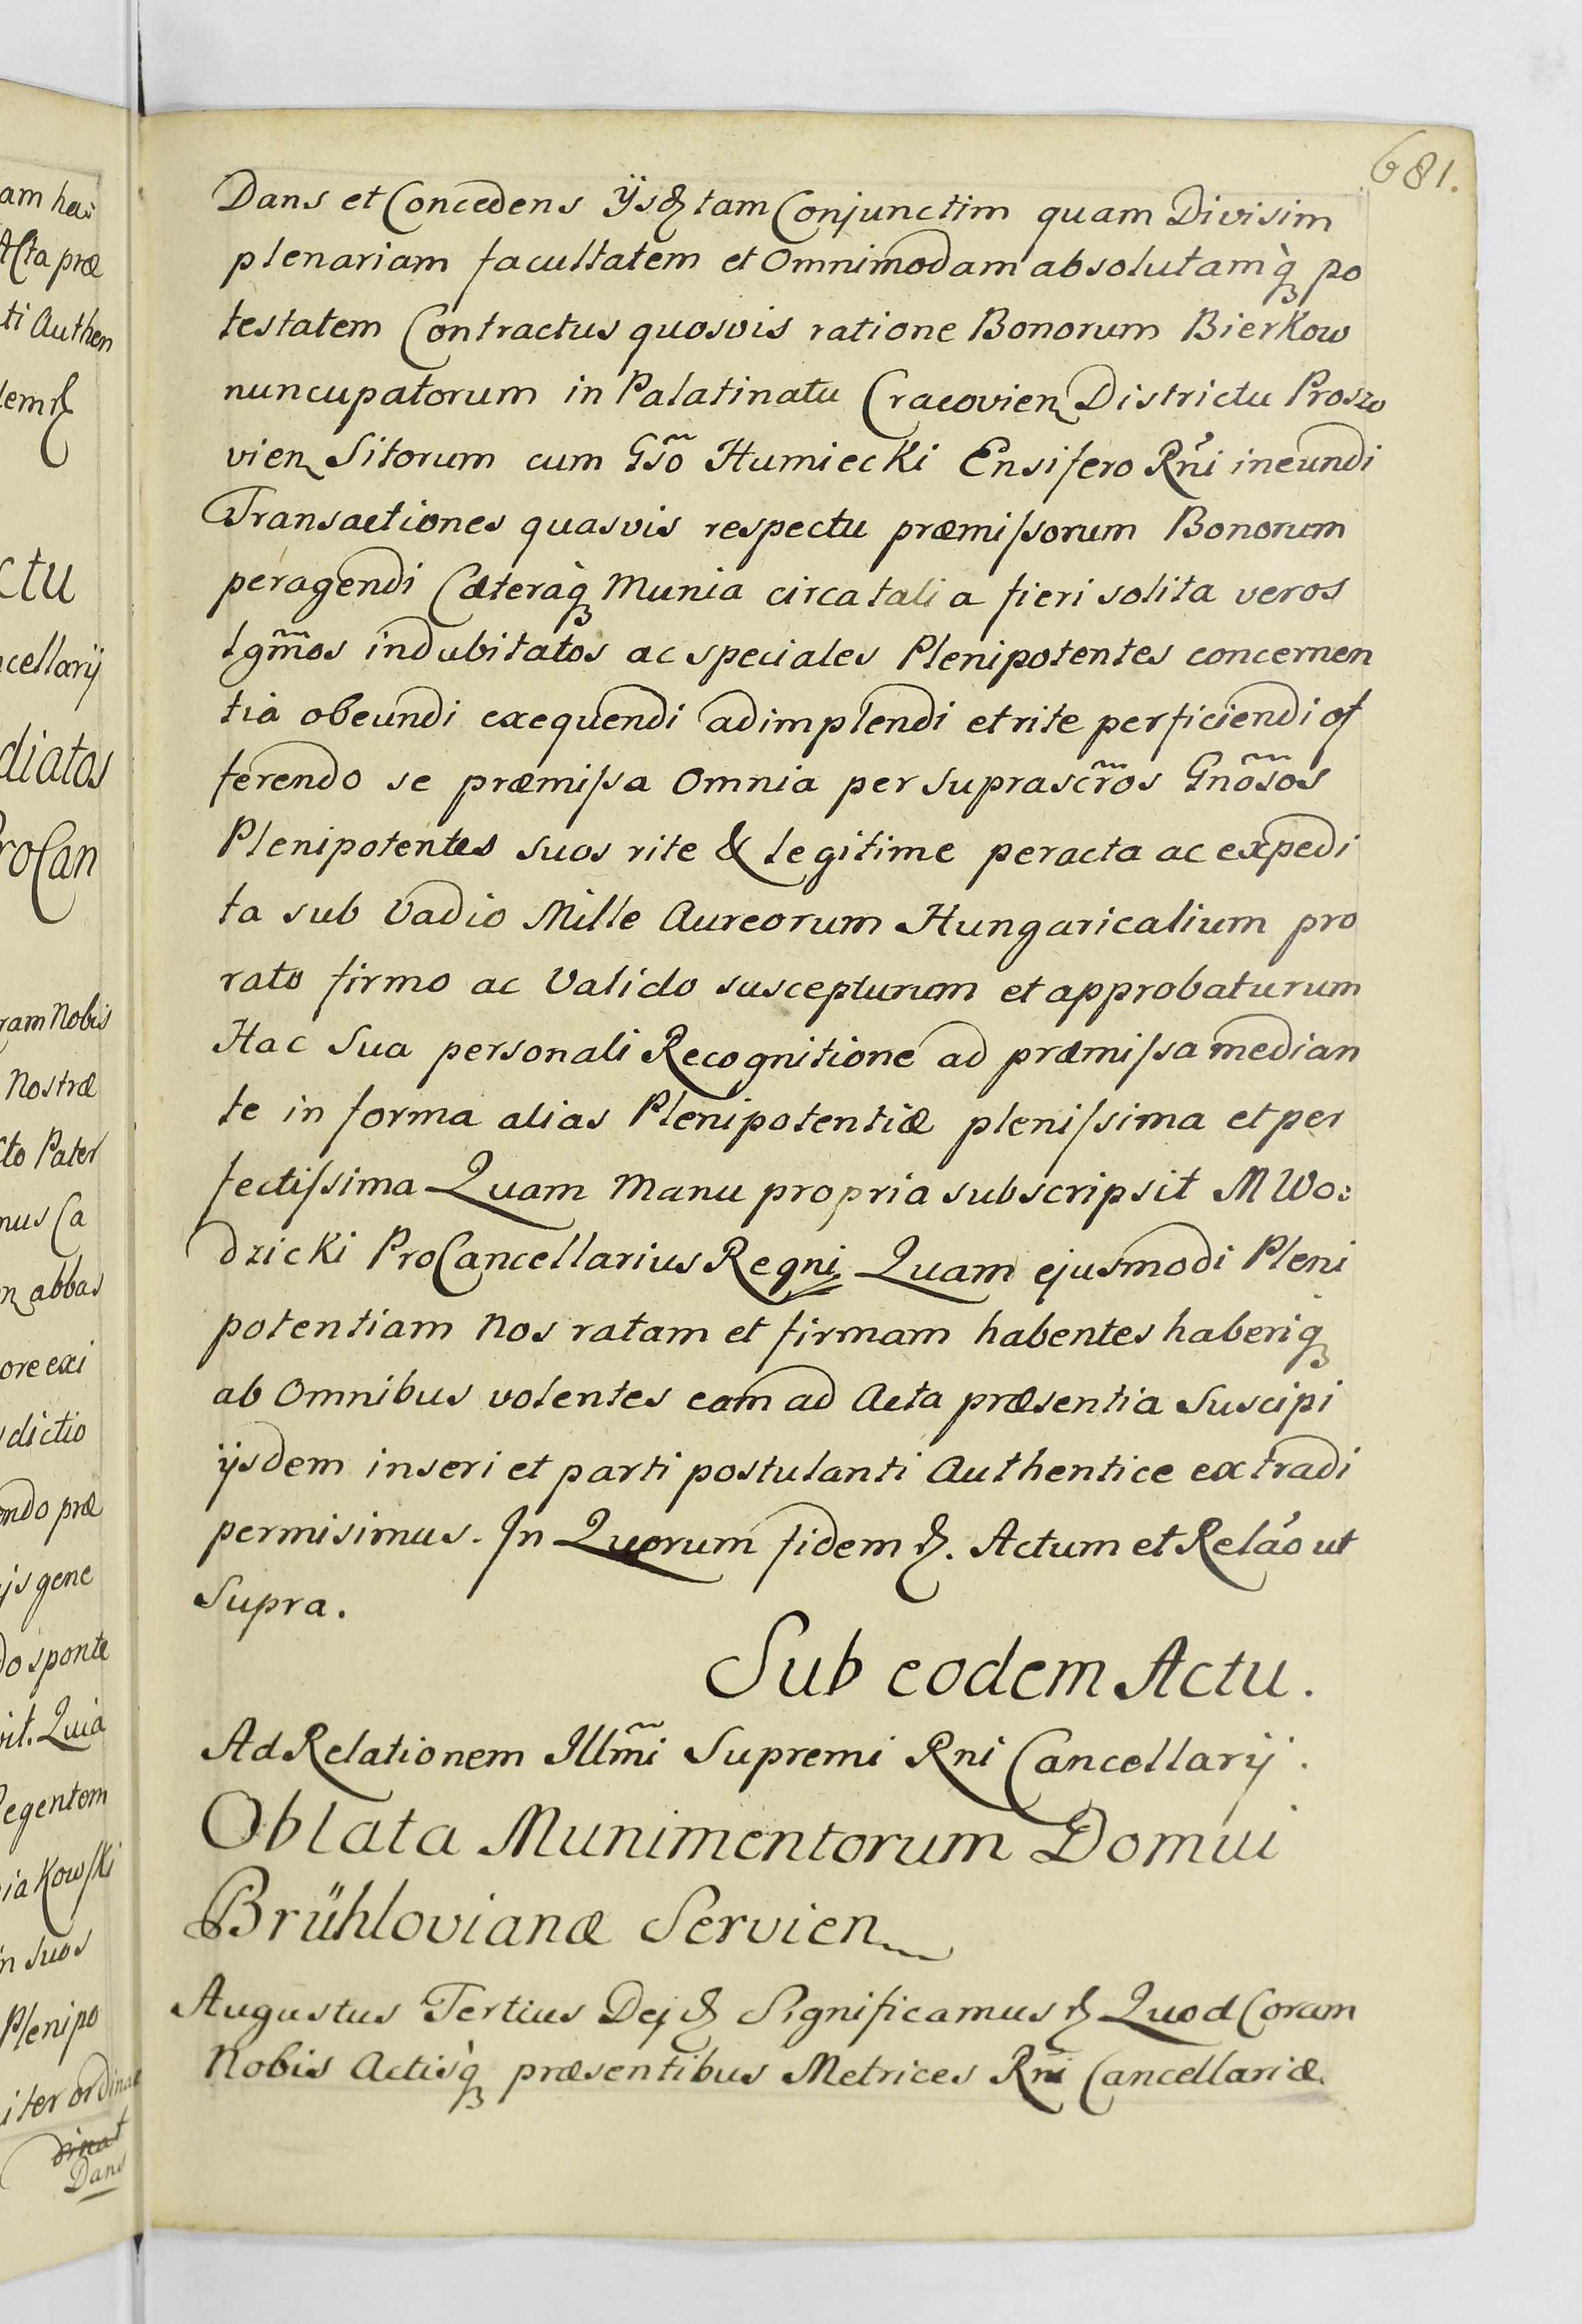 681.
Dans et Concedens ÿsdē tam Conjunctim quam Divisim
plenariam facultatem et Omnimodam absolutamq̀ po
testatem Contractus quosvis ratione Bonorum BierKow
nuncupatorum in Palatinatu Cracovien Districtu Proszo
vien Sitorum cum Gsõ HumiecKi Ensifero Rńi ineundi
Transactiones quasvis respectu præmissorum Bonorum
peragendi Cæteraq̀ Munia circa talia fieri solita veros
lgm̃os indubitatos ac speciales Plenipotentes concernen
tia obeundi exequendi adimplendi et rite perficiendi of
ferendo se præmissa Omnia per suprascr̃os Gnõsos
Plenipotentes suos rite & legitime peracta ac expedi
ta sub Vadio Mille Aureorum Hungaricalium pro
rato firmo ac Valido suscepturum et approbaturum
Hac Sua personali Recognitione ad præmissa median
te in forma alias Plenipotentiæ plenissima et per
fectissima Quam Manu propria subscripsit M Wo:
dzicKi ProCancellarius Regni. Quam ejusmodi Pleni
potentiam Nos ratam et firmam habentes haberiq
ab Omnibus volentes eam ad Acta præsentia Suscipi
ijsdem inseri et parti postulanti Authentice extradi
permisimus. In Quorum fidem &. Actum et Reláo ut
Supra.
Sub eodem Actu.
Ad Relationem Illm̃i Supremi Rni Cancellarij.
Oblata Munimentorum Domui
Brühlovianæ Servien
Augustus Tertius Dej & Significamus & Quod Coram
Nobis Actisq̀ præsentibus Metrices Rni Cancellariæ.